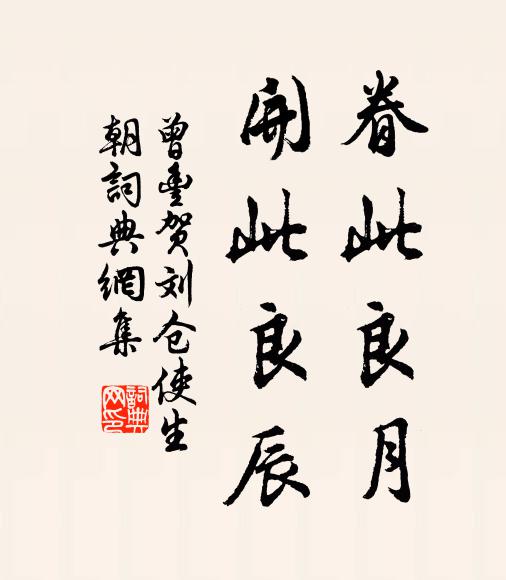 眷此良月
開此良辰
曾豐贺刘仓使生
朝詞典網集
詞典
网印